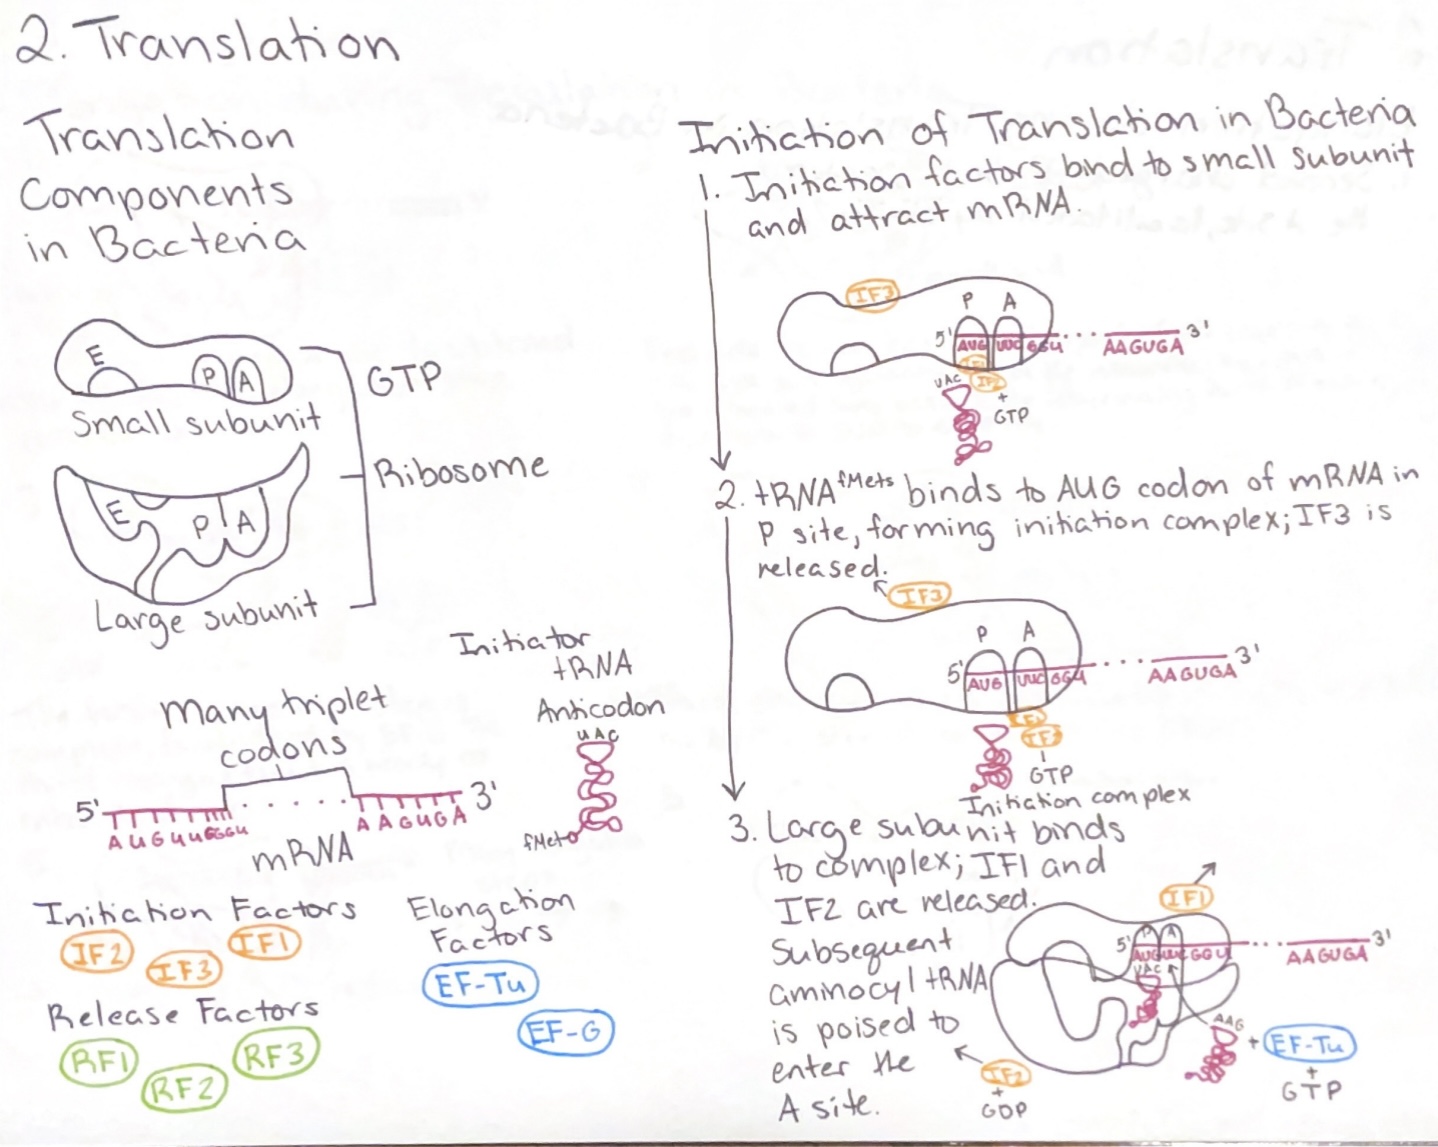 2. Translation
Translation
Components
in Bacteria
E
P A
Small subunit
GTP
Ribosome
E
P A
Large subunit
Initiator
tRNA
Anticodon
UAC
fMet
Many triplet
codons
5' 3'
AUGUUCGGU AAGUGA
mRNA
Initiation Factors
IF2 IF3 IF1
Release Factors
RF1 RF2 RF3
Elongation
Factors
EF-Tu
EF-G
Initiation of Translation in Bacteria
1. Initiation factors bind to small subunit
and attract mRNA.
IF3
P A
5' AUG UUC GGU ... AAGUGA 3'
IF2
UAC
+
GTP
2. tRNA fMets binds to AUG codon of mRNA in
P site, forming initiation complex; IF3 is
released.
IF3
P A
5' AUG UUC GGU ... AAGUGA 3'
GTP
Initiation complex
3. Large subunit binds
to complex; IF1 and
IF2 are released.
Subsequent
aminocyl tRNA
is poised to
enter the
A site.
IF1
P A
5' AUG UUC GGU ... AAGUGA 3'
UAC
AAG
+ EF-Tu
+
GTP
IF2
+
GDP